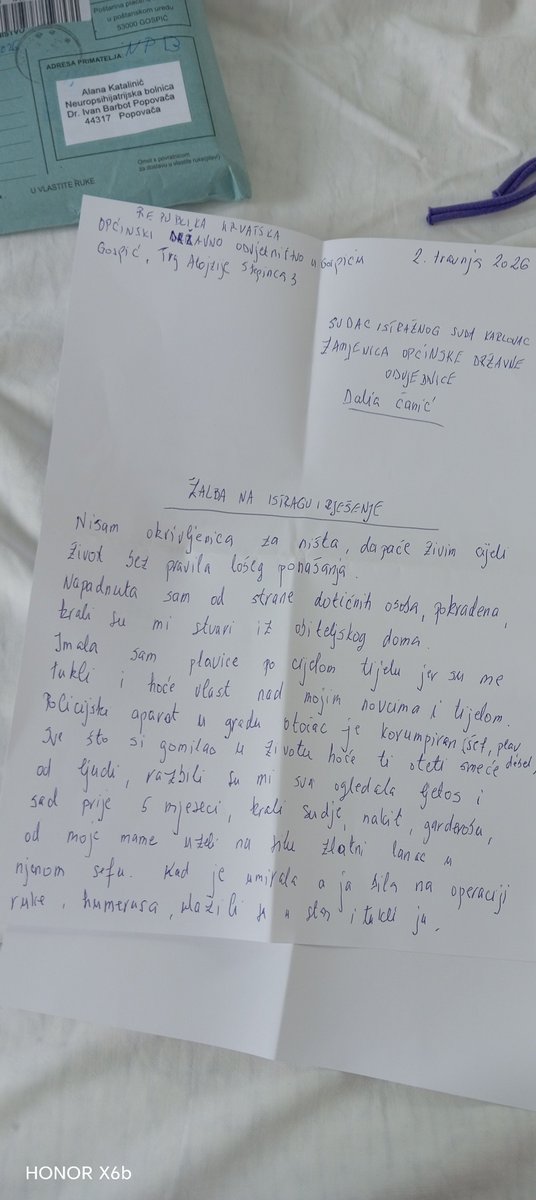 Poštarina plaćena
u poštanskom uredu
53000 GOSPIĆ
ADRESA PRIMATELJA:
NPB
Alana Katalinić
Neuropsihijatrijska bolnica
Dr. Ivan Barbot Popovača
44317 Popovača
U VLASTITE RUKE
REPUBLIKA HRVATSKA
OPĆINSKI DRŽAVNO ODVJETNIŠTVO u Gospiću
Gospić, Trg Alojzije Stepinca 3
2. travnja 2026
SUDAC ISTRAŽNOG SUDA KARLOVAC
ZAMJENICA OPĆINSKE DRŽAVNE
ODVJEDNICE
Dalia Čanić
ŽALBA NA ISTRAGU I RJEŠENJE
Nisam okrivljenica za ništa, dapače živim cijeli
život bez pravila lošeg ponašanja.
Napadnuta sam od strane dotičnih osoba, pokradena,
krali su mi stvari iz obiteljskog doma.
Imala sam plavice po cijelom tijelu jer su me
tukli i hoće vlast nad mojim novcima i tijelom.
Policijski aparat u gradu Otočac je korumpiran (šef, plav
Sve što si gomilao u životu hoće ti oteti smeće
od ljudi, razbili su mi sva ogledala ljetos i
sad prije 5 mjeseci, krali suđe, nakit, garderobu,
od moje mame uzeli na silu zlatni lanac u
njenom sefu. Kad je umirala a ja bila na operaciji
ruke, humerusa, ulazili su u stan i tukli ju.
HONOR X6b